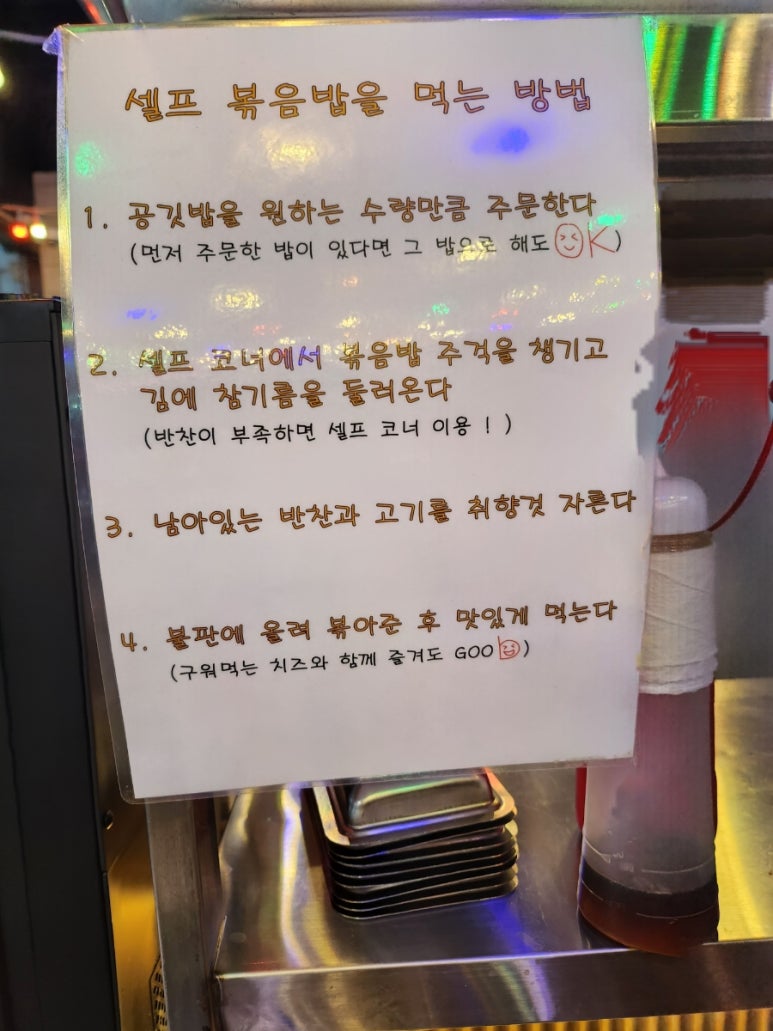 셀프 볶음밥을 먹는 방법
1. 공깃밥을 원하는 수량만큼 주문한다
(먼저 주문한 밥이 있다면 그 밥으로 해도 OK)
2. 셀프 코너에서 볶음밥 주걱을 챙기고
김에 참기름을 둘러온다
(반찬이 부족하면 셀프 코너 이용 ! )
3. 남아있는 반찬과 고기를 취향껏 자른다
4. 불판에 올려 볶아준 후 맛있게 먹는다
(구워먹는 치즈와 함께 즐겨도 GOOD)